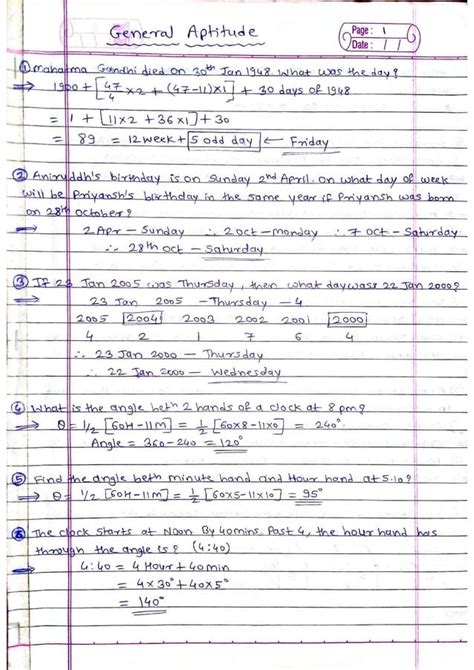 General Aptitude
Page: 1
Date: / /
① Mahatma Gandhi died on 30th Jan 1948. What was the day?
⟹ 1900 + [47/4 x2 + (47-11)x1] + 30 days of 1948
= 1 + [11x2 + 36x1] + 30
= 89 = 12 week + 5 odd day ← Friday
② Aniruddh's birthday is on Sunday 2nd April. On what day of week
will be Priyansh's birthday in the same year if Priyansh was born
on 28th October?
⟹ 2 Apr - Sunday ∴ 2 Oct - monday ∴ 7 Oct - Saturday
∴ 28th Oct - Saturday
③ If 23 Jan 2005 was Thursday, then what day wass 22 Jan 2000?
⟹ 23 Jan 2005 - Thursday - 4
2005 2004 2003 2002 2001 2000
4 2 1 7 6 4
∴ 23 Jan 2000 - Thursday
∴ 22 Jan 2000 - Wednesday
④ What is the angle beth 2 hands of a clock at 8 pm?
⟹ θ = 1/2 [60H-11M] = 1/2 [60x8-11x0] = 240°
Angle = 360-240 = 120°
⑤ Find the angle beth minute hand and Hour hand at 5.10?
⟹ θ = 1/2 [60H-11M] = 1/2 [60x5-11x10] = 95°
⑥ The clock starts at Noon By 40mins. Past 4, the hour hand has
through the angle is? (4:40)
⟹ 4:40 = 4 Hour + 40 min
= 4x30° + 40x5°
= 140°